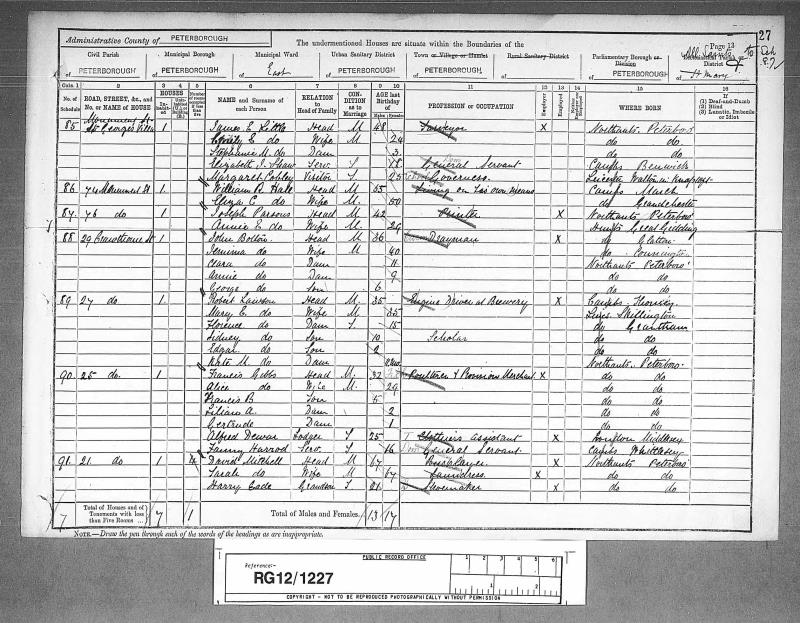 Administrative County of PETERBOROUGH
The undermentioned Houses are situate within the Boundaries of the
Page 13
27
Civil Parish
of PETERBOROUGH
Municipal Borough
of PETERBOROUGH
Municipal Ward
of East
Urban Sanitary District
of PETERBOROUGH
Town or Village or Hamlet
of PETERBOROUGH
Rural Sanitary District
of
Parliamentary Borough or Division
of PETERBOROUGH
Ecclesiastical Parish or District
of St Mary
Cols. 1 2 3 4 5 6 7 8 9 10 11 12 13 14 15 16
No. of Schedule
ROAD, STREET, &c., and No. or NAME of HOUSE
HOUSES
NAME and Surname of each Person
RELATION to Head of Family
CONDITION as to Marriage
AGE last Birthday of
PROFESSION or OCCUPATION
Employer
Employed
WHERE BORN
If (1) Deaf-and-Dumb (2) Blind (3) Lunatic, Imbecile or Idiot
Monument St
85 1 James E. Little Head M 48 Surveyor X Northants Peterboro
E do Wife M 24 do do
Stephanie M. do Daur 3 do do
Elizabeth J. Shaw Serv. S 18 General Servant Cambs Benwick
Margaret Cobley Visitor S 25 Governess Leicester
86 74 Monument St 1 William B. Hale Head M 55 Living on his own means Cambs March
Eliza C do Wife M 50 do
87 76 do 1 Joseph Parsons Head M 42 Printer X Northants Peterboro
Annie E do Wife M 29 Hunts Great Gidding
88 29 Crawthorne St 1 John Bolton Head M 36 Drayman X do Glatton
Jemima do Wife M 40 do Connington
Clara do Daur 11 Northants Peterboro'
Annie do Daur 9 do do
George do Son 6 do do
89 27 do 1 Robert Lawson Head M 35 Engine Driver at Brewery X Cambs Thorney
Mary E. do Wife M 35 Lincs Skillington
Florence do Daur S 15 do Grantham
Sidney do Son 10 Scholar do do
Edgar do Son 2 do do
Kate M. do Daur Northants Peterboro
90 25 do 1 Francis Gibbs Head M 32 Poulterer & Provision Merchant X do do
Alice do Wife M 29 do do
Francis B Son 5 do do
Lilian A. Daur 2 do do
Gertrude Daur 1 do do
Alfred Dewar Lodger S 25 Clothiers Assistant X
Fanny Harrod Serv. S 16 General Servant Cambs Whittlesey
91 21 do 1 4 David Mitchell Head M 67 Bricklayer X Northants Peterboro
Sarah do Wife M 67 Laundress X do do
Harry Cade Grandson S 21 Shoemaker X do do
7 Total of Houses and of Tenements with less than Five Rooms 7 1
Total of Males and Females 13 17
NOTE.—Draw the pen through such of the words of the headings as are inappropriate.
PUBLIC RECORD OFFICE
Reference:-
RG12/1227
1 2 3 4 5 6
COPYRIGHT - NOT TO BE REPRODUCED PHOTOGRAPHICALLY WITHOUT PERMISSION